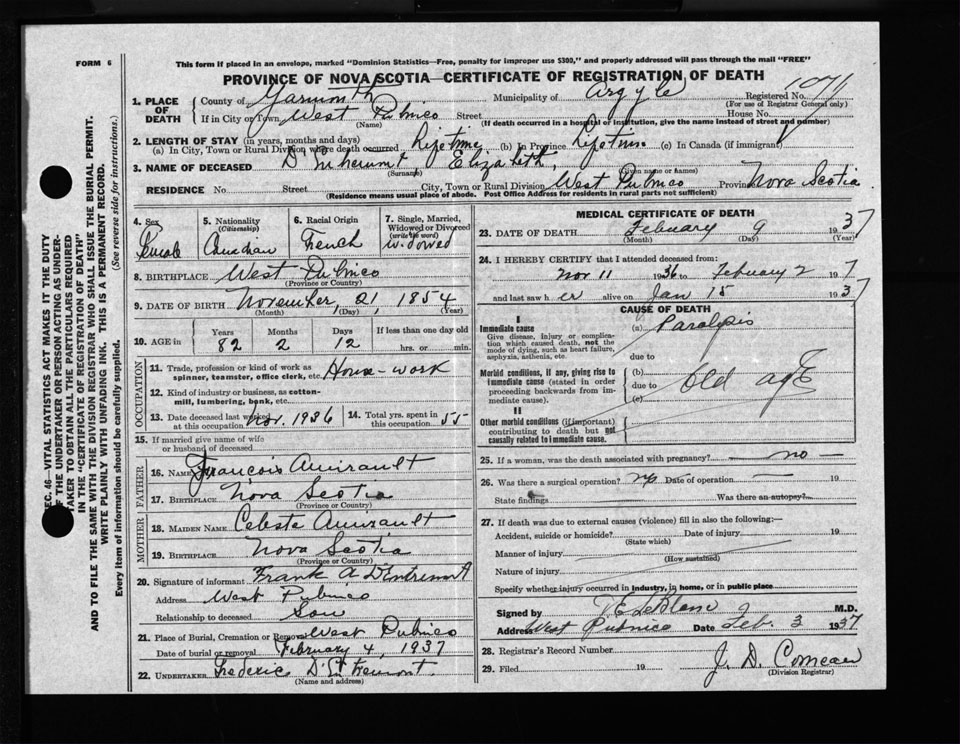 FORM 6
This form if placed in an envelope, marked "Dominion Statistics—Free, penalty for improper use $300," and properly addressed will pass through the mail "FREE"
PROVINCE OF NOVA SCOTIA—CERTIFICATE OF REGISTRATION OF DEATH
1. PLACE OF DEATH
County of Yarmouth Municipality of Argyle Registered No.
(For use of Registrar General only)
If in City or Town West Pubnico Street House No.
(Name) (If death occurred in a hospital or institution, give the name instead of street and number)
2. LENGTH OF STAY (in years, months and days)
(a) In City, Town or Rural Division where death occurred Lifetime (b) In Province Lifetime (c) In Canada (if immigrant)
3. NAME OF DECEASED D'Entremont Elizabeth
(Surname) (Given name or names)
RESIDENCE No. Street City, Town or Rural Division West Pubnico Province Nova Scotia
(Residence means usual place of abode. Post Office Address for residents in rural parts not sufficient)
SEC. 46—VITAL STATISTICS ACT MAKES IT THE DUTY
OF THE UNDERTAKER OR PERSON ACTING AS UNDER-
TAKER TO OBTAIN ALL THE PARTICULARS REQUIRED
IN THE "CERTIFICATE OF REGISTRATION OF DEATH"
AND TO FILE THE SAME WITH THE DIVISION REGISTRAR WHO SHALL ISSUE THE BURIAL PERMIT.
WRITE PLAINLY WITH UNFADING INK. THIS IS A PERMANENT RECORD.
Every item of information should be carefully supplied. (See reverse side for instructions.)
4. Sex 5. Nationality (Citizenship) 6. Racial Origin 7. Single, Married, Widowed or Divorced (write the word)
Female Canadian French Widowed
8. BIRTHPLACE West Pubnico
(Province or Country)
9. DATE OF BIRTH November, 21, 1854
(Month) (Day) (Year)
10. AGE in Years Months Days If less than one day old
82 2 12 hrs. or min.
OCCUPATION
11. Trade, profession or kind of work as spinner, teamster, office clerk, etc. House-work
12. Kind of industry or business, as cotton-mill, lumbering, bank, etc.
13. Date deceased last worked at this occupation Nov. 1936 14. Total yrs. spent in this occupation 55
15. If married give name of wife or husband of deceased
FATHER
16. Name Francois Amirault
17. Birthplace Nova Scotia
(Province or Country)
MOTHER
18. Maiden Name Celeste Amirault
19. Birthplace Nova Scotia
(Province or Country)
20. Signature of informant Frank A D'Entremont
Address West Pubnico
Relationship to deceased Son
21. Place of Burial, Cremation or Removal West Pubnico
Date of burial or removal February 4, 1937
22. UNDERTAKER Frederic D'Entremont
(Name and address)
MEDICAL CERTIFICATE OF DEATH
23. DATE OF DEATH February 1937
(Month) (Day) (Year)
24. I HEREBY CERTIFY that I attended deceased from:
Nov 11 1936 to February 2 1937
and last saw her alive on Jan 15 1937
CAUSE OF DEATH
I
Immediate cause (a) Paralysis
Give disease, injury or complication which caused death, not the mode of dying, such as heart failure, asphyxia, asthenia, etc.
due to
Morbid conditions, if any, giving rise to immediate cause (stated in order proceeding backwards from immediate cause).
(b)
due to Old age
(c)
II
Other morbid conditions (if important) contributing to death but not causally related to immediate cause.
25. If a woman, was the death associated with pregnancy? no
26. Was there a surgical operation? no Date of operation 19
State findings Was there an autopsy?
27. If death was due to external causes (violence) fill in also the following:—
Accident, suicide or homicide? Date of injury 19
(State which)
Manner of injury
(How sustained)
Nature of injury
Specify whether injury occurred in industry, in home, or in public place
Signed by LeBlanc M.D.
Address West Pubnico Date Feb. 3 1937
28. Registrar's Record Number
29. Filed 19 J. D. Comeau
(Division Registrar)